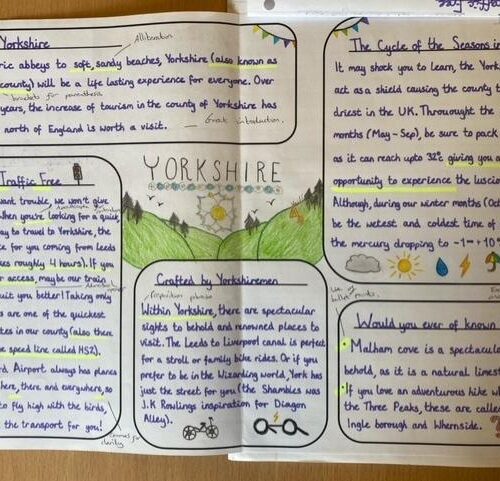 Yorkshire
Alliteration
ric abbeys to soft, sandy beaches, Yorkshire (also known as
county) will be a life lasting experience for everyone. Over
brackets for parenthesis
years, the increase of tourism in the county of Yorkshire has
north of England is worth a visit.
Great introduction.
Traffic Free
want trouble, we won't give
hen you're looking for a quick
ay to travel to Yorkshire, the
te for you coming from Leeds
es roughly 4 hours). If you
r access, maybe our train
uit you better! Taking only
s are one of the quickest
tes in our county (also there
e speed line called HS2).
rd Airport always has planes
here, there and everywhere, so
to fly high with the birds,
the transport for you!
Commas for clarity
YORKSHIRE
Crafted by Yorkshiremen
Within Yorkshire, there are spectacular
sights to behold and renowned places to
visit. The Leeds to Liverpool canal is perfect
for a stroll or family bike rides. Or if you
prefer to be in the Wizarding world, York has
just the street for you (the Shambles was
J.K Rowlings inspiration for Diagon
Alley).
The Cycle of the Seasons i
It may shock you to learn, the York
act as a shield causing the county t
driest in the UK. Throughout the
months (May - Sep), be sure to pack
as it can reach upto 32°c giving you a
opportunity to experience the luscio
Although, during our winter months (Oct
be the wettest and coldest time of
the mercury dropping to -1 +10
Use of bullet points.
Would you ever of known
Malham cove is a spectacula
behold, as it is a natural limest
If you love an adventurous hike wh
the Three Peaks, these are called
Ingle borough and Whernside.